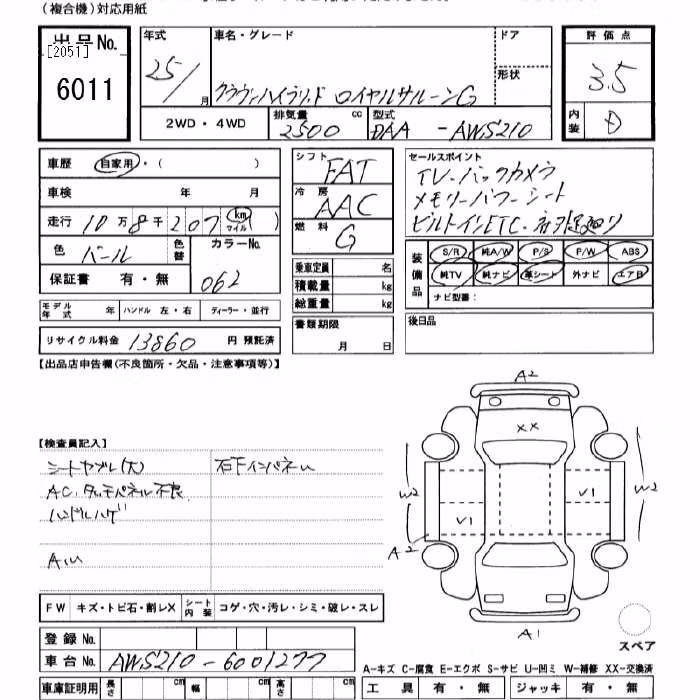 (複合機)対応用紙
出品No.
[2051]
6011
年式
25/月
車名・グレード
クラウンハイブリッド ロイヤルサルーンG
ドア
形状
2WD・4WD
排気量 cc
2500
型式
DAA -AWS210
評価点
3.5
内装
D
車歴 自家用・( )
車検 年 月
走行 10万8千207 km マイル )
色 パール 色替
カラーNo.
062
保証書 有・無
モデル年式 年 ハンドル 左・右 ディーラー・並行
リサイクル料金 13860 円 預託済
シフト FAT
冷房 AAC
燃料 G
乗車定員 名
積載量 kg
総重量 kg
書類期限
月 日
セールスポイント
TV・バックカメラ
メモリーパワーシート
ビルトインETC・
装備品
S/R 純A/W P/S P/W ABS
純TV 純ナビ 革シート 外ナビ エアB
ナビ型番:
後日品
【出品店申告欄(不良箇所・欠品・注意事項等)】
【検査員記入】
シートヤブレ(大) 右下インパネU
AC.タッチパネル不良
ハンドルハゲ
A.U
A2
XX
W2
V1
V1
W2
A2
A1
スペア
FW キズ・トビ石・割レX シート内装 コゲ・穴・汚レ・シミ・破レ・スレ
登録No.
車台No. AWS210-6001277
車庫証明用 長さ cm 幅 cm 高さ cm
A-キズ C-腐食 E-エクボ S-サビ U-凹ミ W-補修 XX-交換済
工具 有・無 ジャッキ 有・無